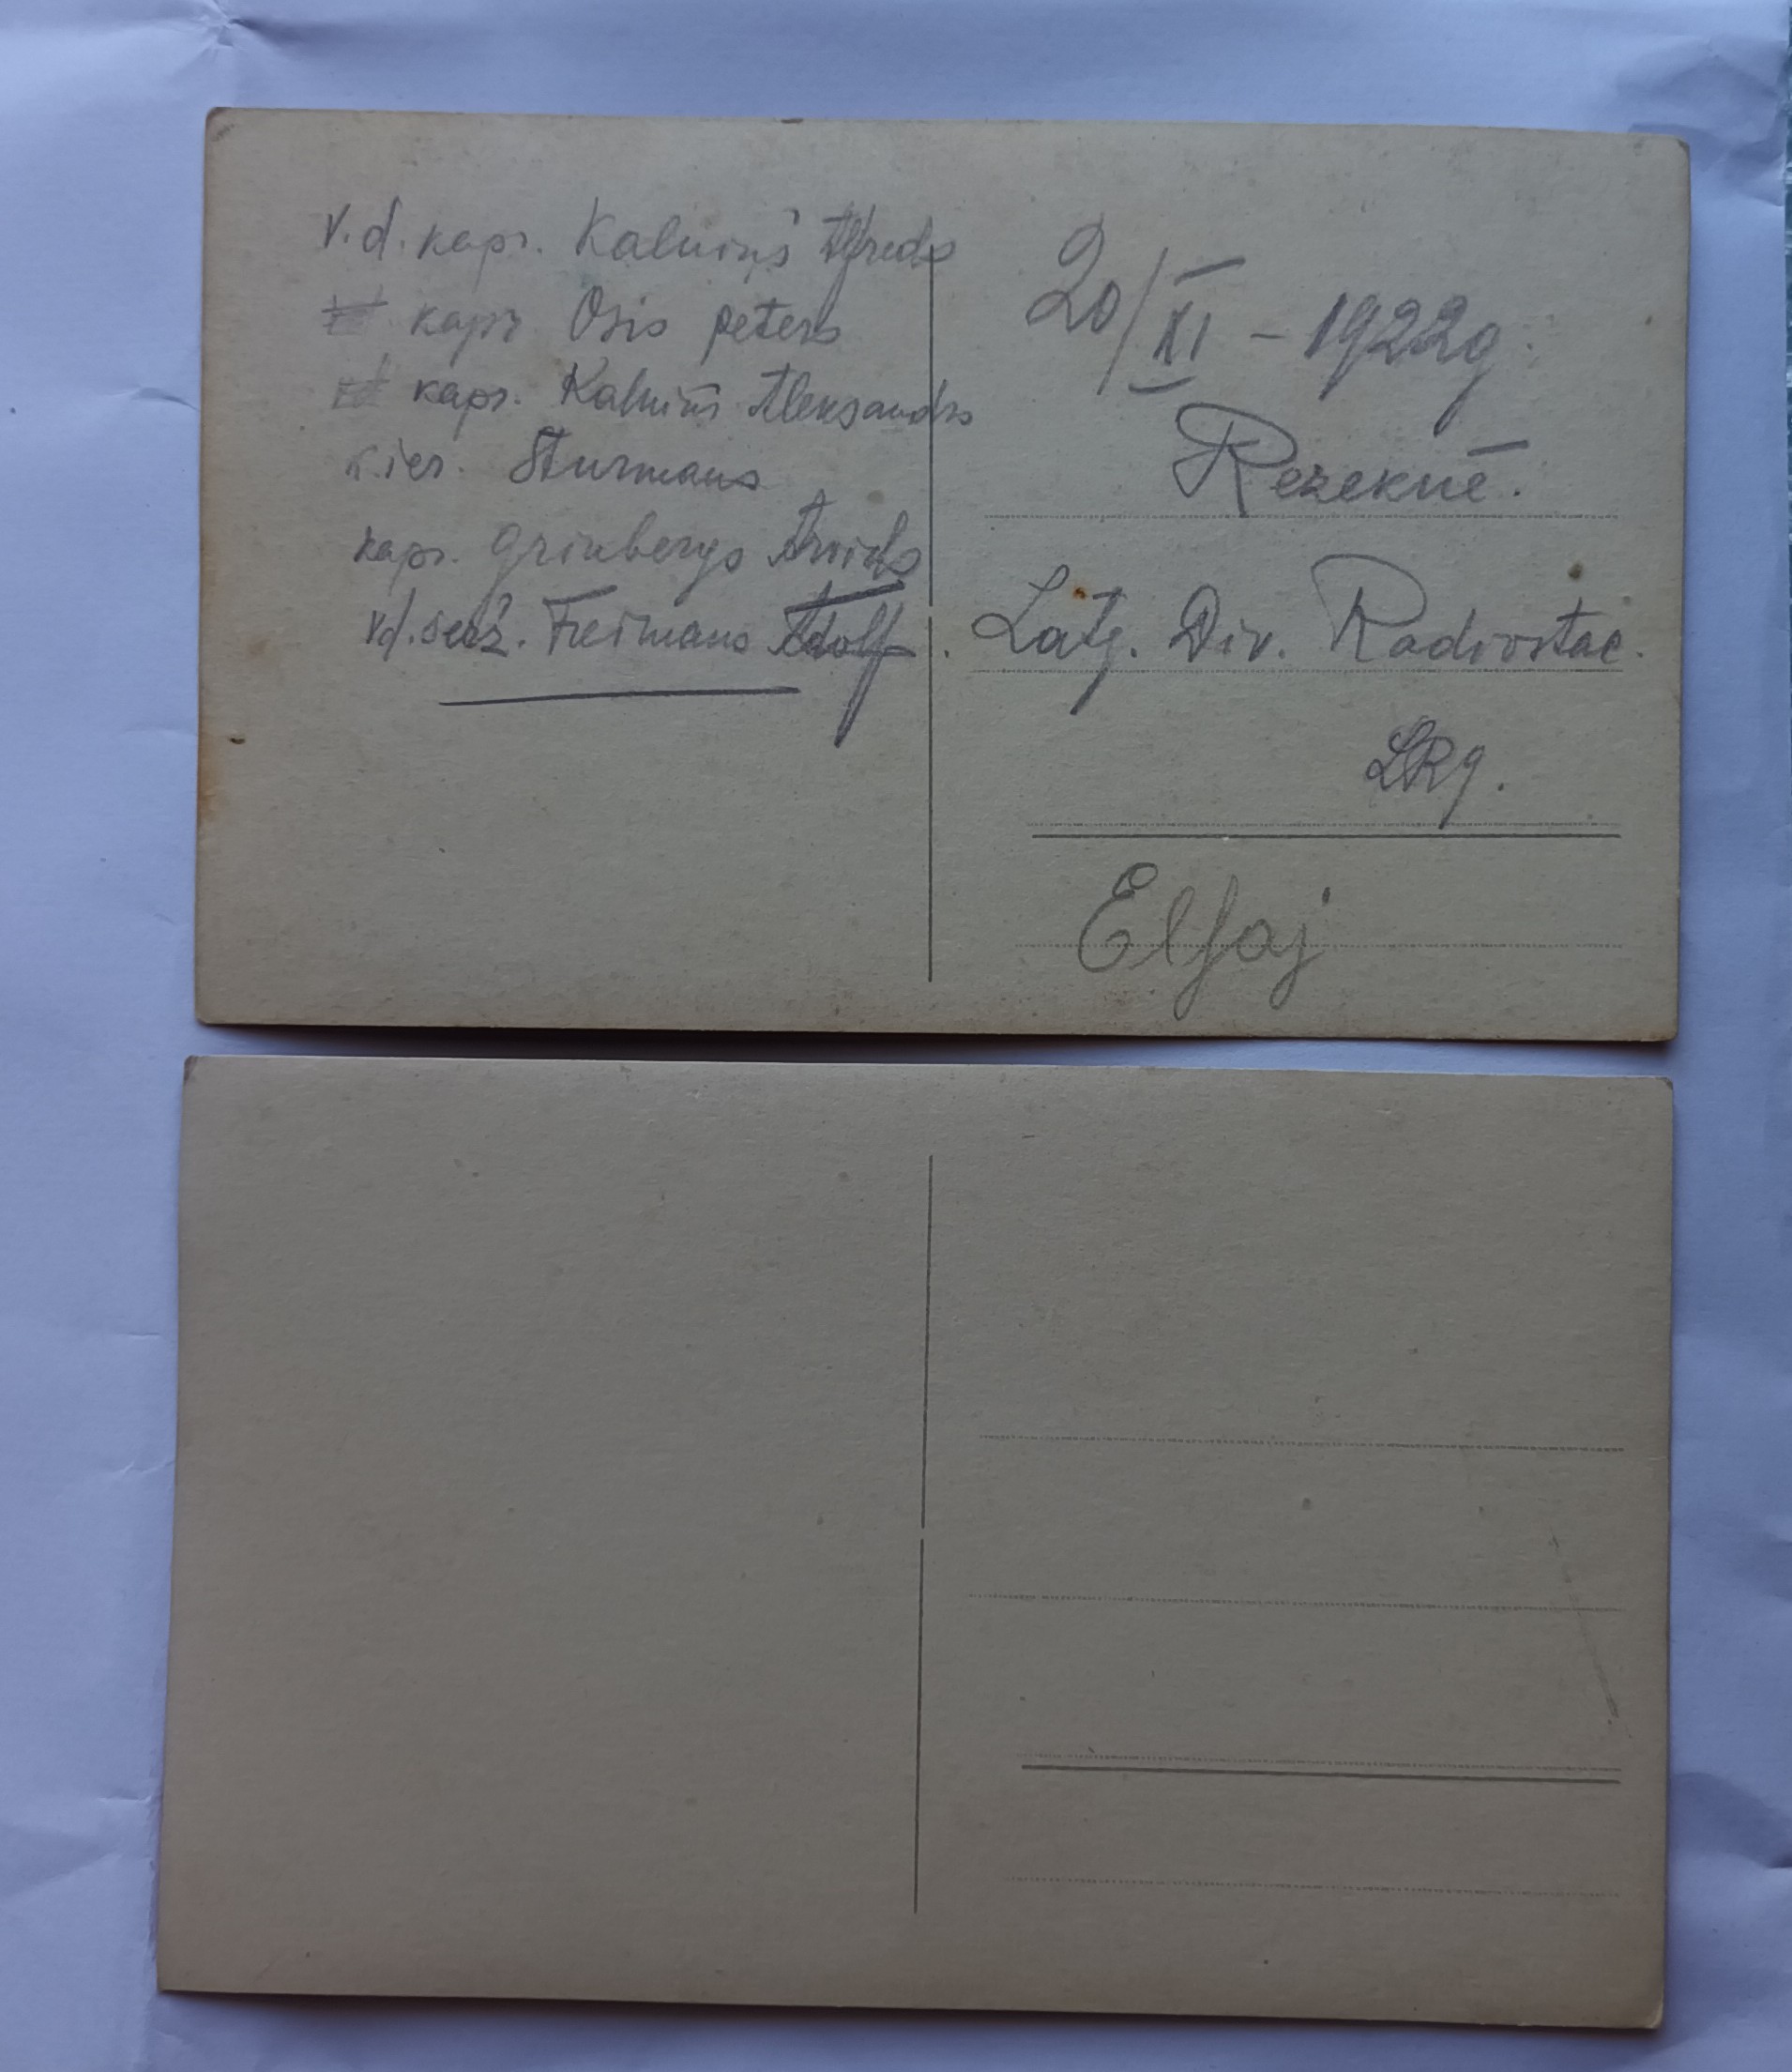 v.d. kapr. Kalniņš Alfreds
kapr Osis peters
kapr. Kalniņš Aleksandrs
k.ier. Sturmans
kapr. Grinbergs Arvids
vd. serž. Freimans Adolfs.
20/XI – 1922g.
Rezeknē.
Latg. Div. Radiostac.
Elfaj